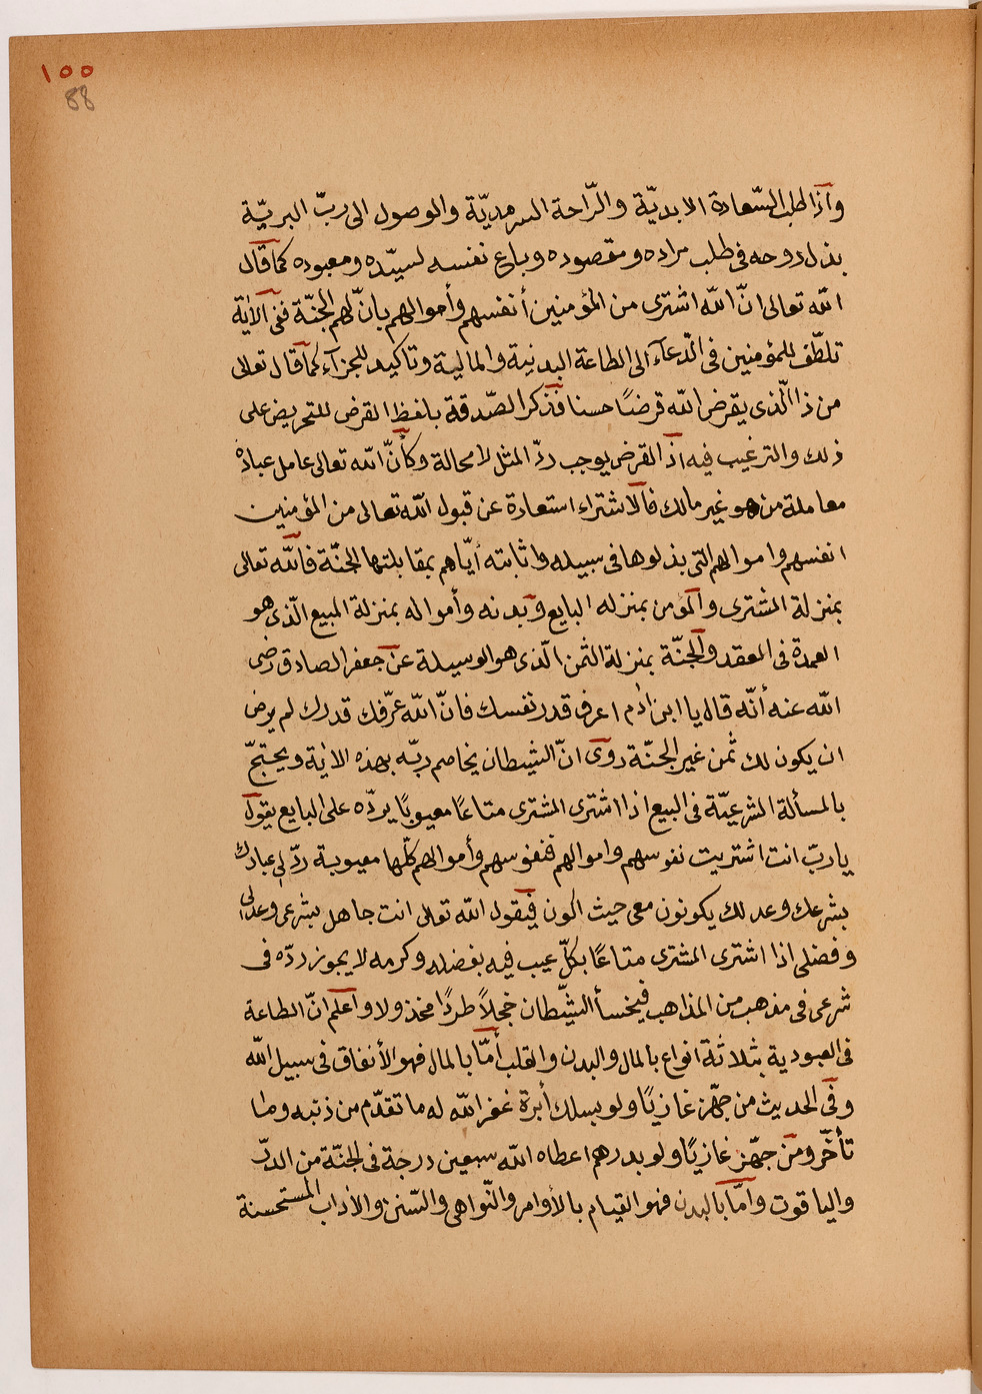 ١٥٥
88
واذا طلب السّعادة الابديّة والرّاحة السرمديّة والوصول الى ربّ البريّة
بذل روحه فى طلب مراده ومقصوده وباع نفسه لسيّده ومعبوده كما قال
الله تعالى انّ الله اشترى من المؤمنين أنفسهم وأموالهم بانّ لهم الجنّة ففى الآية
تلطّف للمؤمنين فى الدّعاء الى الطاعة البدنية والمالية وتاكيد للجزآء كما قال تعالى
من ذا الّذى يقرض الله قرضًا حسنا فذكر الصّدقة بلفظ القرض للتحريض على
ذلك والترغيب فيه اذ القرض يوجب ردّ المثل لا محالة وكأنّ الله تعالى عامل عباده
معاملة من هو غير مالك فالاشتراء استعارة عن قبول الله تعالى من المؤمنين
انفسهم واموالهم التى بذلوها فى سبيله واثابته أيّاهم بمقابلتها الجنّة فالله تعالى
بمنزلة المشترى والمؤمن بمنزله البايع وبدنه وأمواله بمنزلة المبيع الّذى هو
العمدة فى العقد والجنّة بمنزلة الثمن الّذى هو الوسيلة عن جعفر الصادق رضى
الله عنه أنّه قال يا ابن ادٰم اعرف قدر نفسك فانّ الله عرّفك قدرك لم يرض
ان يكون لك ثمن غير الجنّة روى انّ الشيطان يخاصم ربّه بهذه الاية ويحتجّ
بالمسألة الشرعيّة فى البيع اذا اشترى المشترى متاعًا معيوبًا يردّه على البايع يقول
ياربّ انت اشتريت نفوسهم واموالهم فنفوسهم وأموالهم كلّها معيوبة ردّ لى عبادك
بشرعك وعدلك يكونون معى حيث اكون فيقول الله تعالى انت جاهل بشرعى وعدلى
وفضلى اذا اشترى المشترى متاعًا بكلّ عيب فيه بفضله وكرمه لا يجوز ردّه فى
شرعى فى مذهب من المذاهب فيخسأ الشيّطان خجلاً طردًا مخذولا واعلم انّ الطاعة
فى العبودية بثلاثة انواع بالمال والبدن والقلب أمّا بالمال فهو الأنفاق فى سبيل الله
وفى الحديث من جهّز غازيًا ولو بسلك أبرة غفر الله له ما تقدّم من ذنبه وما
تأخّر ومن جهّز غازيًا ولو بدرهم اعطاه الله سبعين درجة فى الجنّة من الدرّ
والياقوت وامّا بالبدن فهو القيام بالأوامر والنّواهى والسّنن والاداب المستحسنة